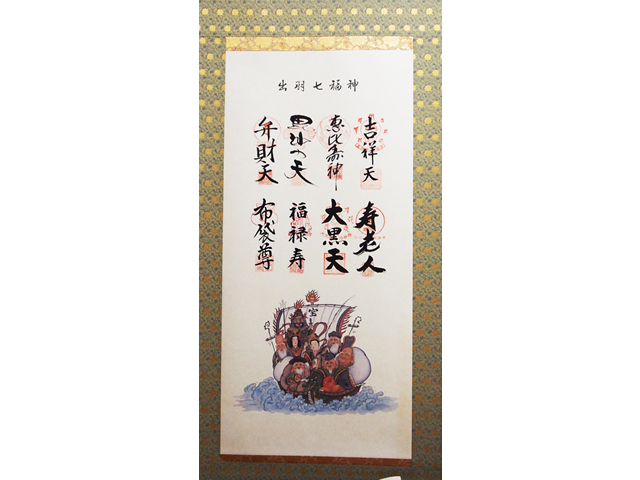 出羽七福神
吉祥天
恵比寿神
毘沙門天
弁財天
寿老人
大黒天
福禄寿
布袋尊
宝